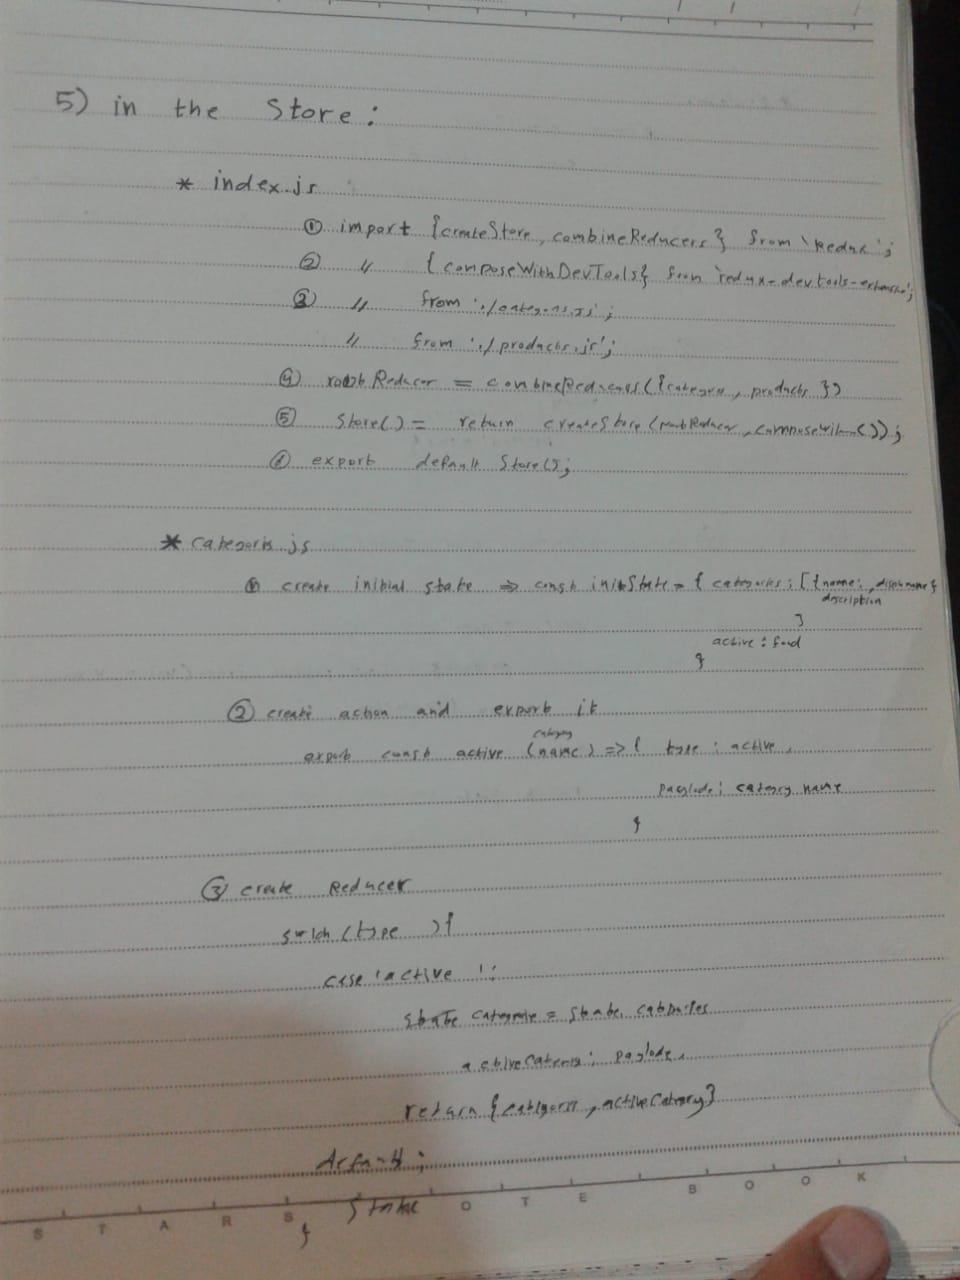 5) in the Store :
* index.js
① import {createStore, combineReducers} from 'Redux';
② " {composeWithDevTools} from 'redux-devtools-extension';
③ " from './categoris.js';
" from './products.js';
④ rootReducer = combineReducers({categores, products})
⑤ Store() = return createStore(rootReducer, composeWith...());
⑥ export default Store();
* categoris.js
① create initial state => const initState = { categories: [{name:, dis...name}
description
]
active: food
}
② create action and export it
category
export const active (name) => { type: active,
paylode: category name
}
③ create Reducer
swich (type){
case 'active':
state categorie = state. categories
activeCategory: paylode,
return {categoris, activeCategory}
default:
state
}
STARS NOTE BOOK